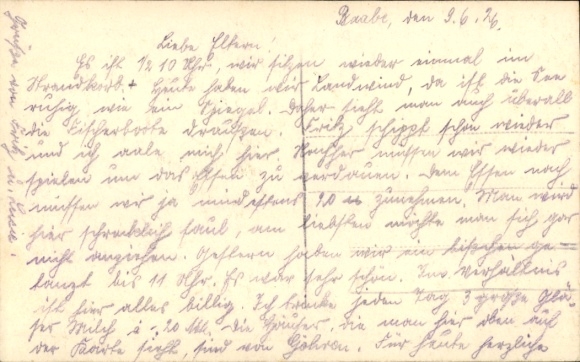 Baabe, den 9.6.26.
Liebe Eltern!
Es ist ½ 10 Uhr, wir sitzen wieder einmal im
Strandkorb. Heute haben wir Landwind, da ist die See
ruhig, wie ein Spiegel. Daher sieht man auch überall
die Fischerboote draußen. Fritz schippt schon wieder
und ich aale mich hier. Nachher müssen wir wieder
spielen um das Essen zu verdauen. Dem Essen nach
müssen wir ja mindestens 20 zunehmen. Man wird
hier schrecklich faul, am liebsten möchte man sich gar
nicht anziehen. Gestern haben wir ein bißchen ge-
tanzt bis 11 Uhr. Es war sehr schön. Im Verhältnis
ist hier alles billig. Ich trinke jeden Tag 3 große Glä-
ser Milch á -,20 Mk. Die Häuser, die man hier oben auf
der Karte sieht, sind von Göhren. Für heute herzliche
Grüße von Euch